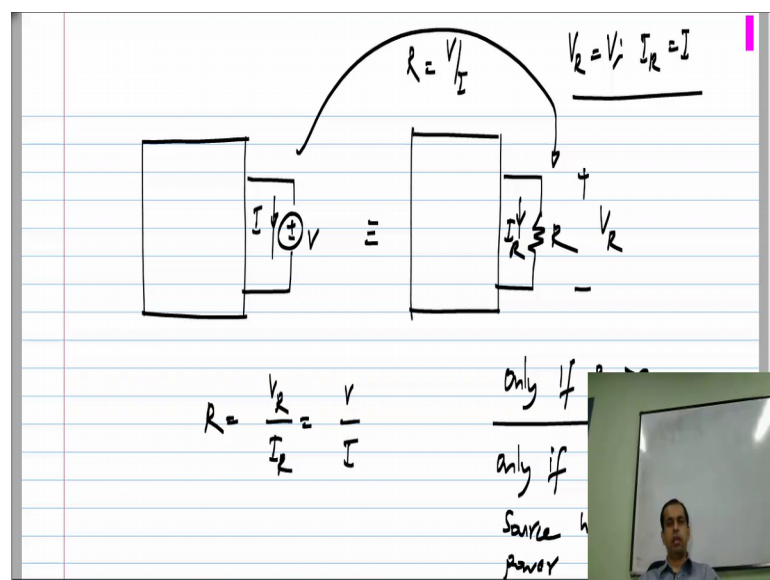 R = V/I
V_R = V; I_R = I
I
V
≡
I_R
R
+
V_R
−
R = V_R/I_R = V/I
only if
only if
Source
power